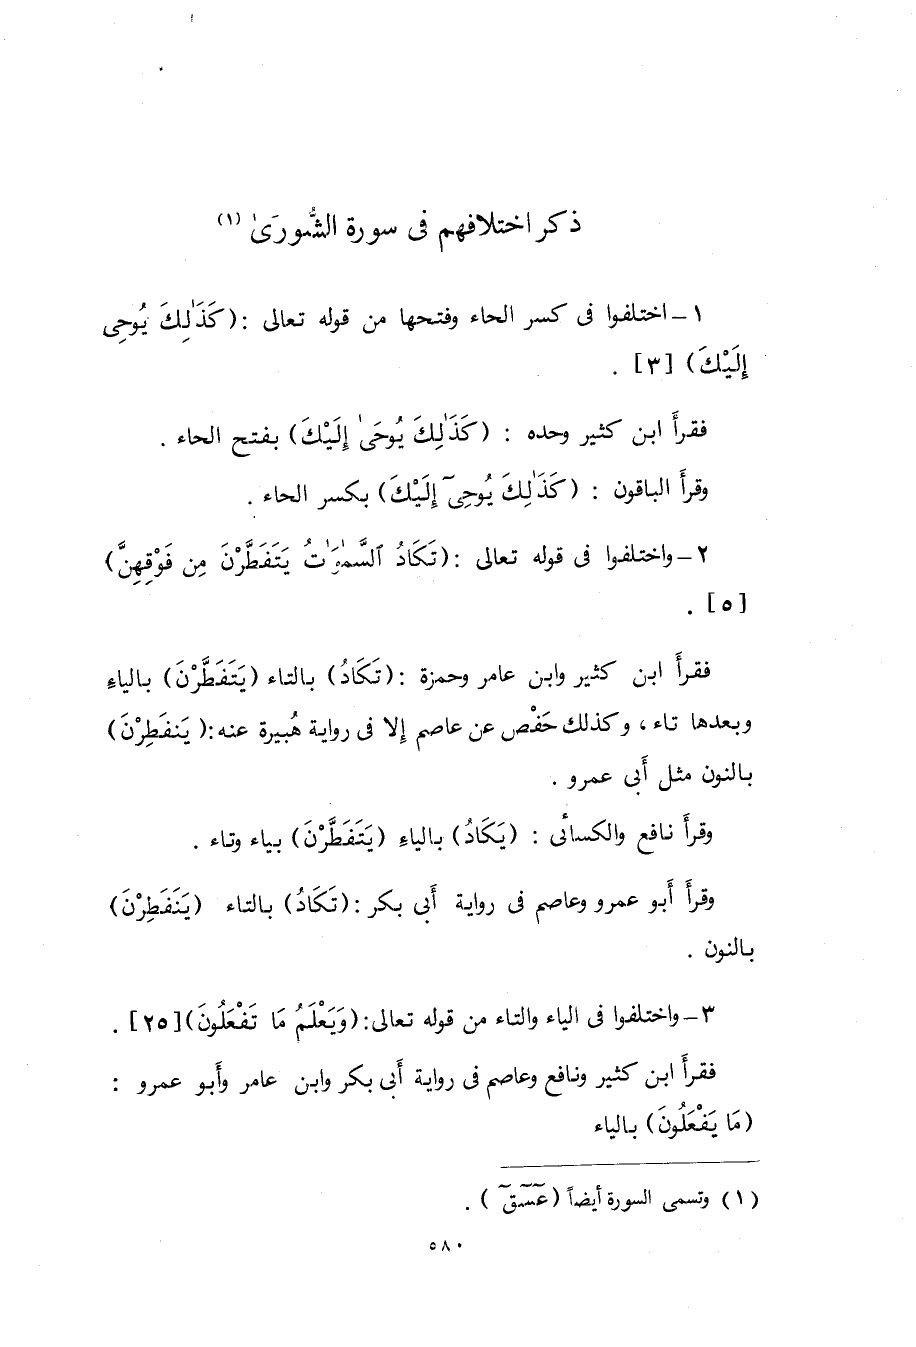 ذكر اختلافهم فى سورة الشُّورَىٰ (١)
١ – اختلفوا فى كسر الحاء وفتحها من قوله تعالى : (كَذَٰلِكَ يُوحِى
إِلَيْكَ) [٣] .
فقرأَ ابن كثير وحده : (كَذَٰلِكَ يُوحَىٰ إِلَيْكَ) بفتح الحاء .
وقرأَ الباقون : (كَذَٰلِكَ يُوحِىٓ إِلَيْكَ) بكسر الحاء .
٢ – واختلفوا فى قوله تعالى : (تَكَادُ ٱلسَّمَٰوَٰتُ يَتَفَطَّرْنَ مِن فَوْقِهِنَّ)
[٥] .
فقرأَ ابن كثير وابن عامر وحمزة : (تَكَادُ) بالتاء (يَتَفَطَّرْنَ) بالياءِ
وبعدها تاء ، وكذلك حَفْص عن عاصم إِلا فى رواية هُبيرة عنه : ( يَنفَطِرْنَ)
بالنون مثل أَبى عمرو .
وقرأَ نافع والكسائى : (يَكَادُ) بالياءِ (يَتَفَطَّرْنَ) بياء وتاء .
وقرأَ أَبو عمرو وعاصم فى رواية أَبى بكر : (تَكَادُ) بالتاء (يَنفَطِرْنَ)
بالنون .
٣ – واختلفوا فى الياء والتاء من قوله تعالى : (وَيَعْلَمُ مَا تَفْعَلُونَ) [٢٥] .
فقرأَ ابن كثير ونافع وعاصم فى رواية أَبى بكر وابن عامر وأَبو عمرو :
(مَا يَفْعَلُونَ) بالياء
(١) وتسمى السورة أيضاً (عٓسٓقٓ ) .
٥٨٠